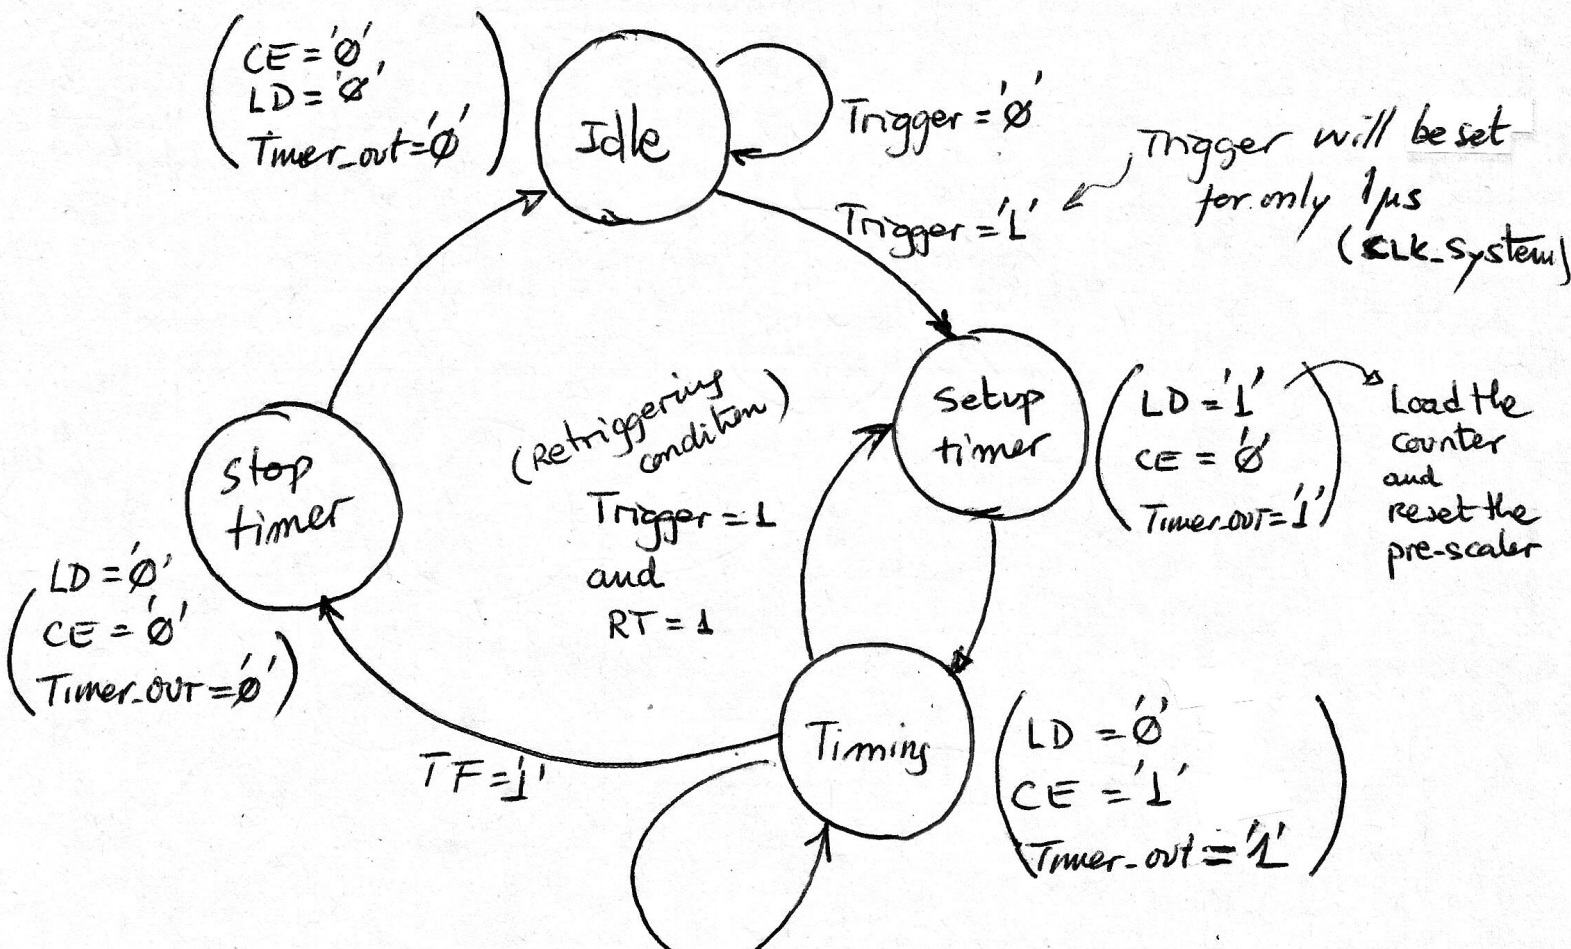 CE = '0'
LD = '0'
Timer_out='0'
Idle
Trigger = '0'
Trigger = '1'
Trigger will be set
for only 1µs
(CLK_System)
Setup
timer
LD = '1'
CE = '0'
Timer_out='1'
Load the
counter
and
reset the
pre-scaler
(Retriggering
condition)
Trigger = 1
and
RT = 1
Stop
timer
LD = '0'
CE = '0'
Timer_out='0'
TF='1'
Timing
LD = '0'
CE = '1'
Timer_out = '1'